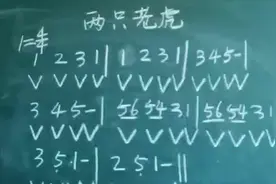 两只老虎
1=4/4
1 2 3 1 | 1 2 3 1 | 3 4 5 - |
V V V V V V V V V V V
3 4 5 - | 56 54 3 1 | 56 54 3 1
V V V V V V V V V V V V
3 5 1 - | 2 5 1 - ||